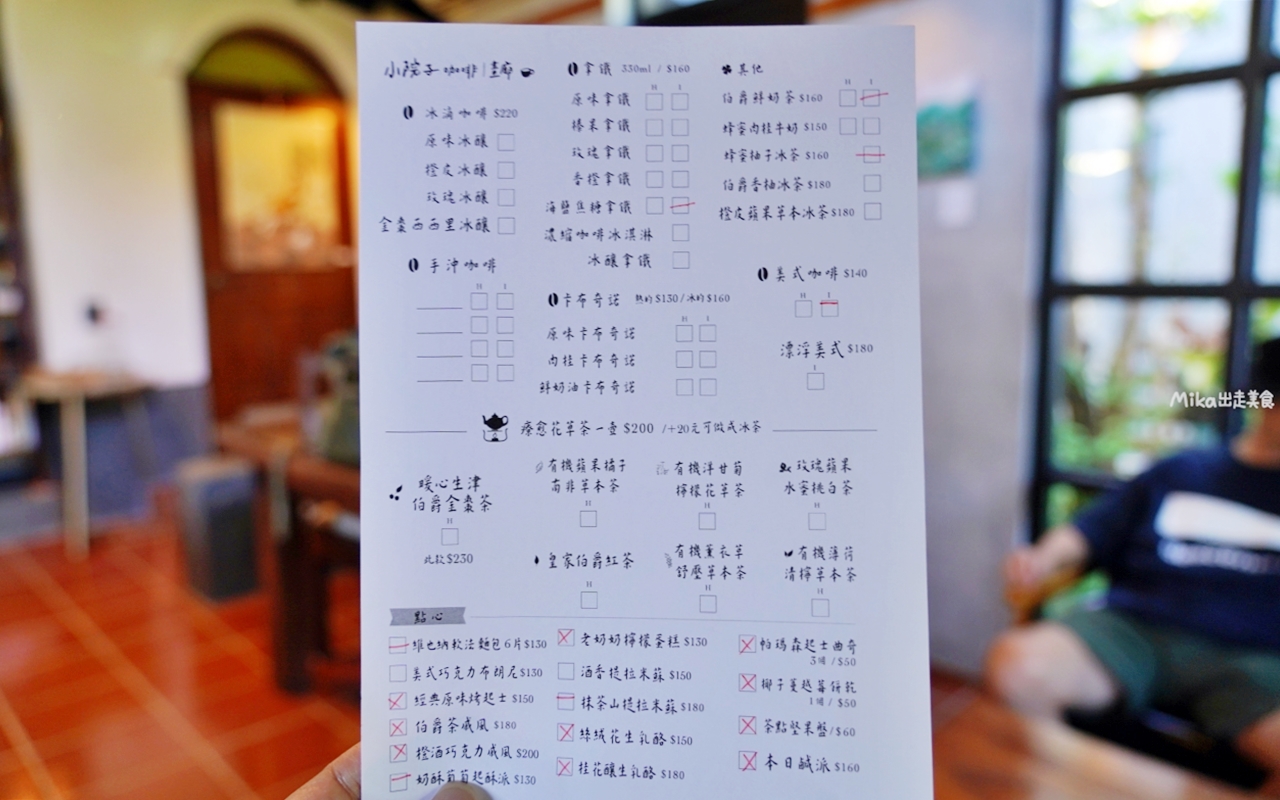 小院子咖啡|畫廊
冰滴咖啡 $220
原味冰釀
橙皮冰釀
玫瑰冰釀
金棗西西里冰釀
手沖咖啡
H I
拿鐵 330ml / $160
H I
原味拿鐵
榛果拿鐵
玫瑰拿鐵
香橙拿鐵
海鹽焦糖拿鐵
濃縮咖啡冰淇淋
冰釀拿鐵
卡布奇諾 熱的 $130 / 冰的 $160
H I
原味卡布奇諾
肉桂卡布奇諾
鮮奶油卡布奇諾
其他
H I
伯爵鮮奶茶 $160
蜂蜜肉桂牛奶 $150
蜂蜜柚子冰茶 $160
伯爵香柚冰茶 $180
橙皮蘋果草本冰茶 $180
美式咖啡 $140
H I
漂浮美式 $180
I
療愈花草茶一壺 $200 /+20元可做成冰茶
暖心生津
伯爵金棗茶
H
此款 $230
有機蘋果橘子
南非草本茶
H
有機洋甘菊
檸檬花草茶
H
玫瑰蘋果
水蜜桃白茶
H
皇家伯爵紅茶
H
有機薰衣草
舒壓草本茶
H
有機薄荷
清檸草本茶
H
點心
維也納軟法麵包6片 $130
美式巧克力布朗尼 $130
經典原味烤起士 $150
伯爵茶戚風 $180
橙酒巧克力戚風 $200
奶酥蔔蔔起酥派 $130
老奶奶檸檬蛋糕 $130
酒香提拉米蘇 $150
抹茶山提拉米蘇 $180
絲絨花生乳酪 $150
桂花釀生乳酪 $180
帕瑪森起士曲奇
3項 / $50
椰子蔓越莓餅乾
1項 / $50
茶點堅果盤 / $60
本日鹹派 $160
Mika出走美食